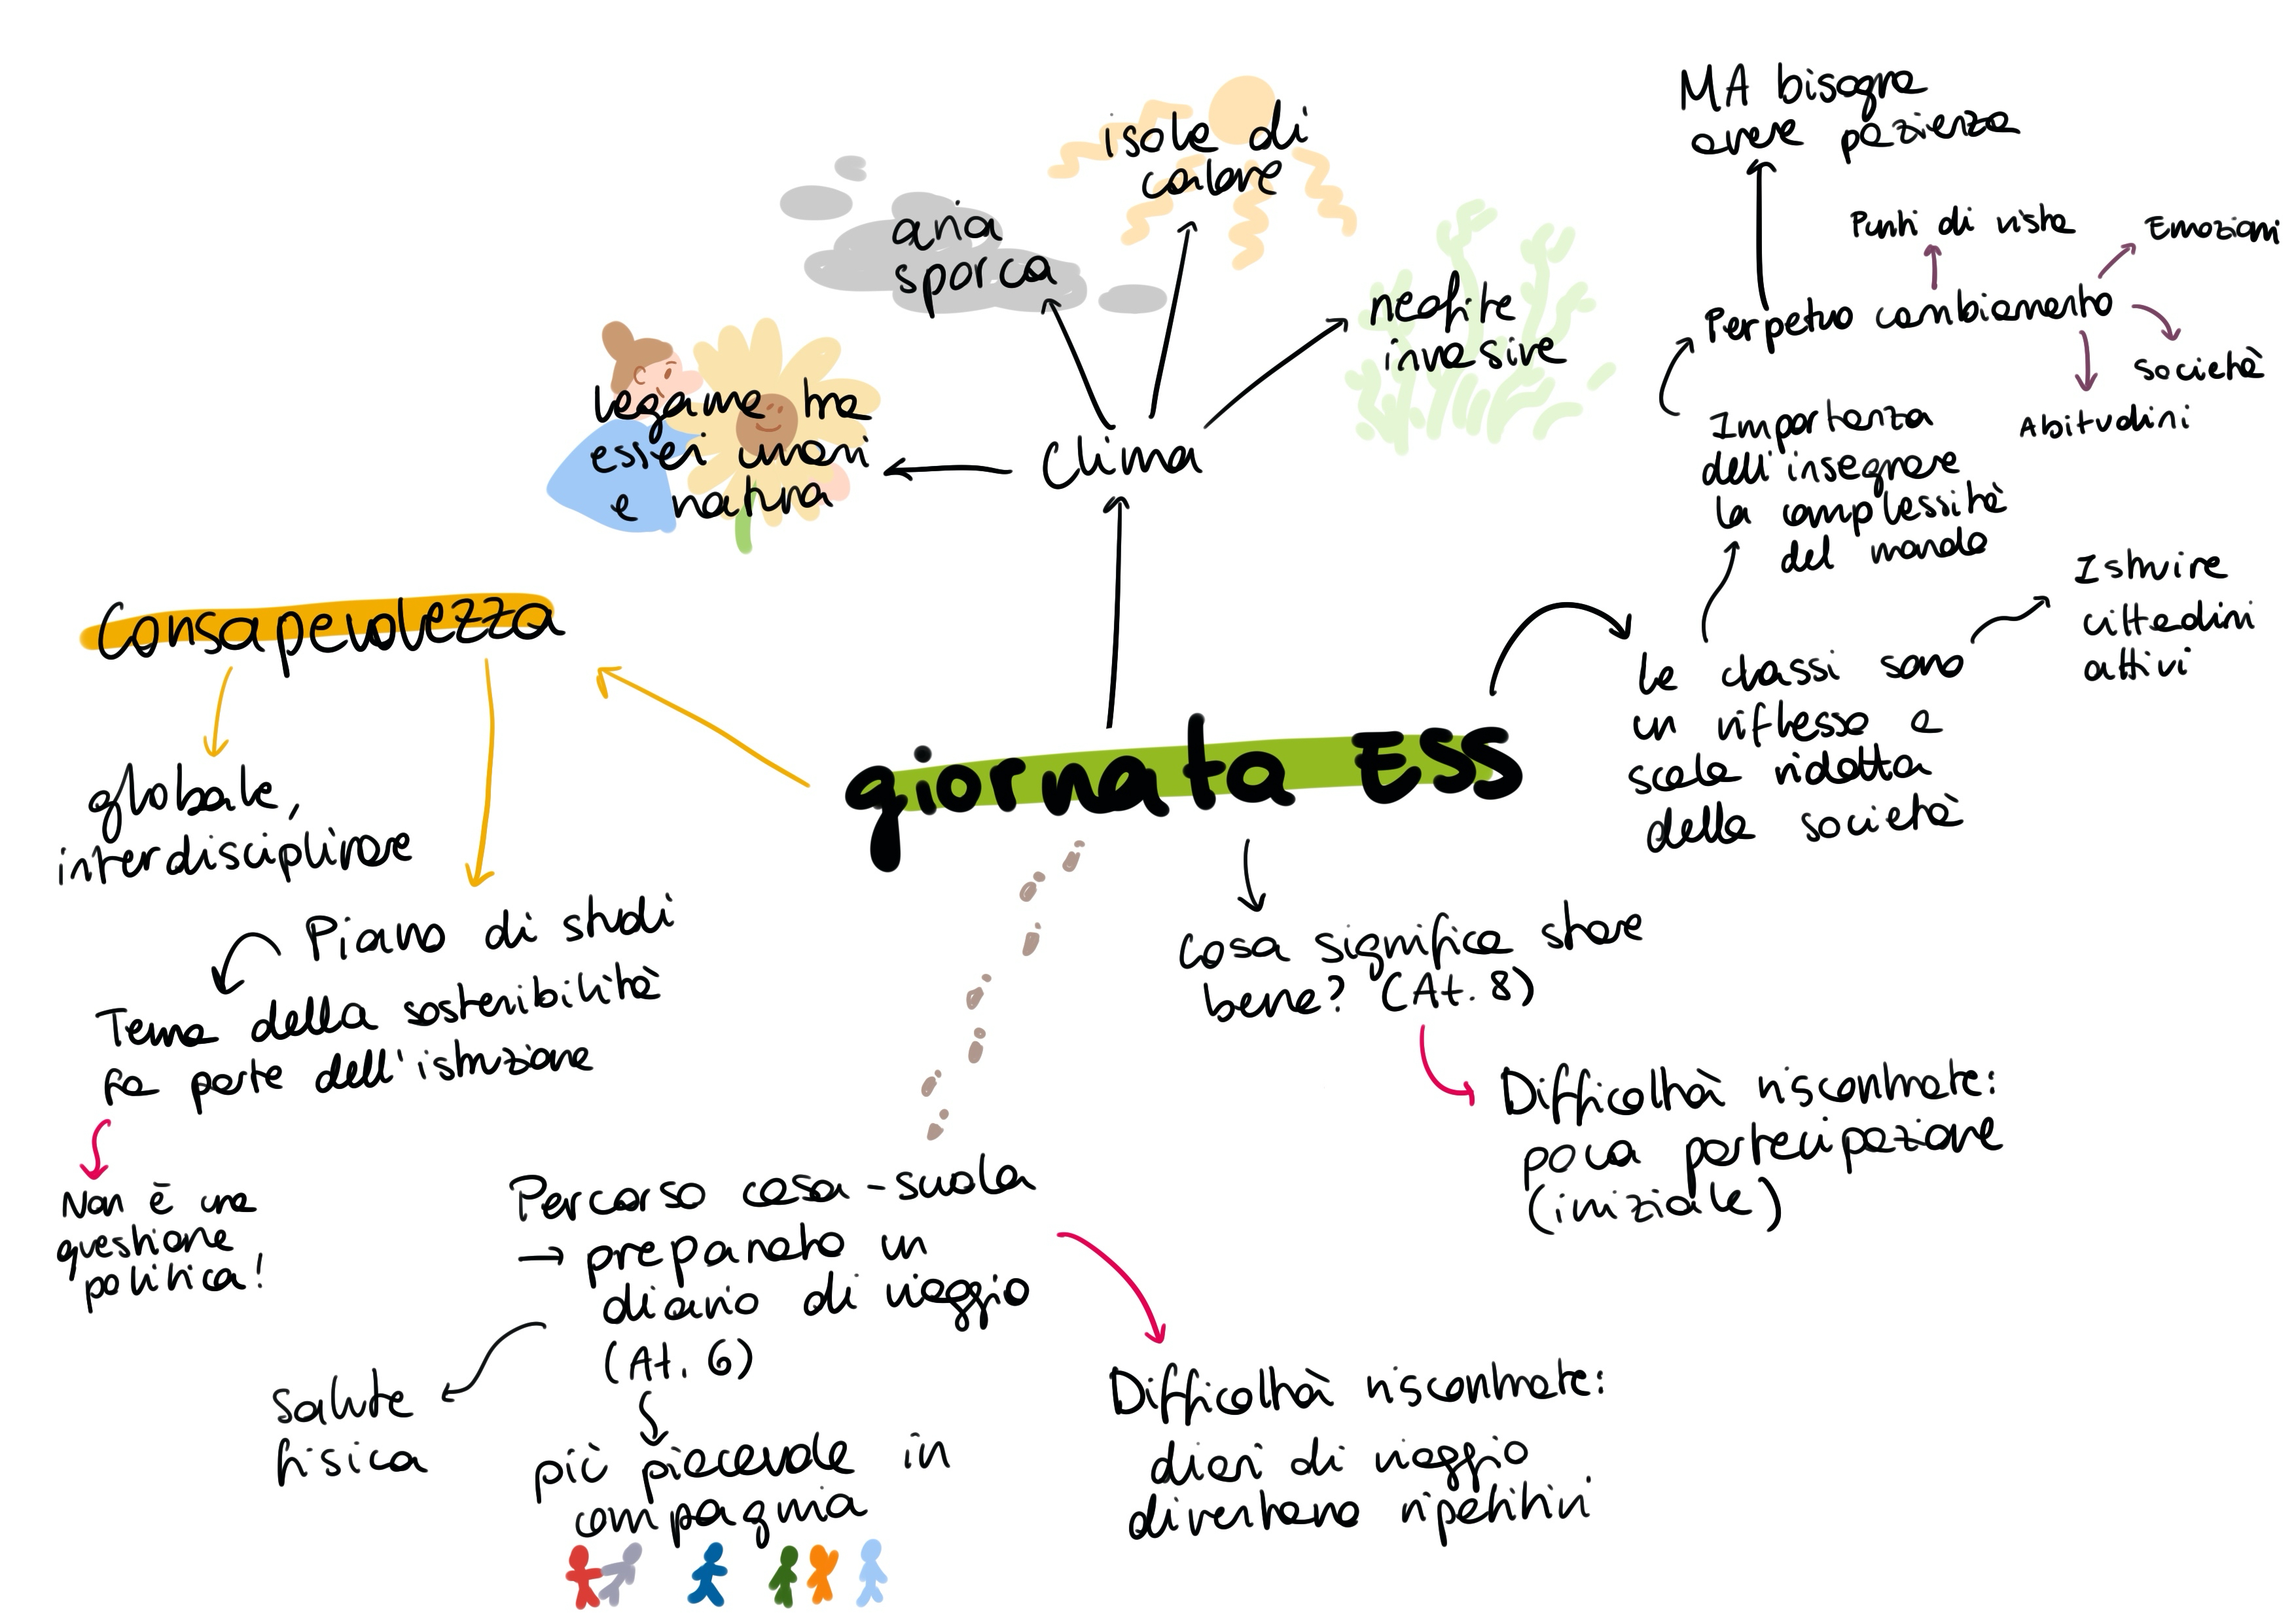 MA bisogna
avere pazienza
isole di
calore
aria
sporca
Punti di vista
Emozioni
neofite
invasive
Perpetuo cambiamento
società
Abitudini
legame tra
esseri umani
e natura
Clima
Importanza
dell'insegnare
la complessità
del mondo
Istruire
cittadini
attivi
Consapevolezza
le classi sono
un riflesso a
scala ridotta
della società
giornata ESS
globale,
interdisciplinare
Piano di studi
Tema della sostenibilità
fa parte dell'istruzione
Non è una
questione
politica!
Cosa significa stare
bene? (At. 8)
Difficoltà riscontrate:
poca partecipazione
(iniziale)
Percorso casa-scuola
→ preparato un
diario di viaggio
(At. 6)
salute
fisica
più piacevole in
compagnia
Difficoltà riscontrate:
diari di viaggio
diventano ripetitivi